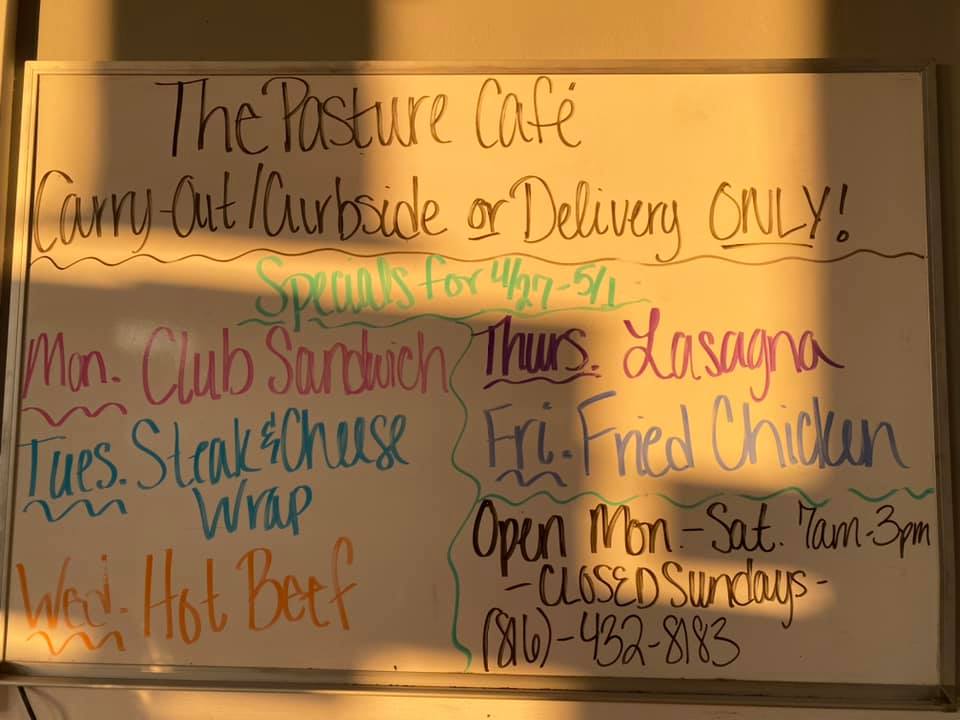 The Pasture Café
Carry-Out/Curbside or Delivery ONLY!
Specials for 4/27-5/1
Mon. Club Sandwich
Tues. Steak & Cheese
Wrap
Wed. Hot Beef
Thurs. Lasagna
Fri. Fried Chicken
Open Mon.-Sat. 7am-3pm
-CLOSED Sundays-
(816)-432-8183